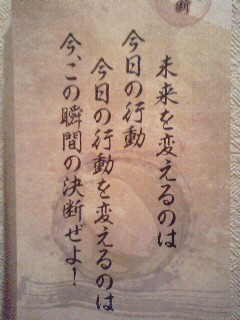 断
未来を変えるのは
今日の行動
今日の行動を変えるのは
今、この瞬間の決断ぜよ！